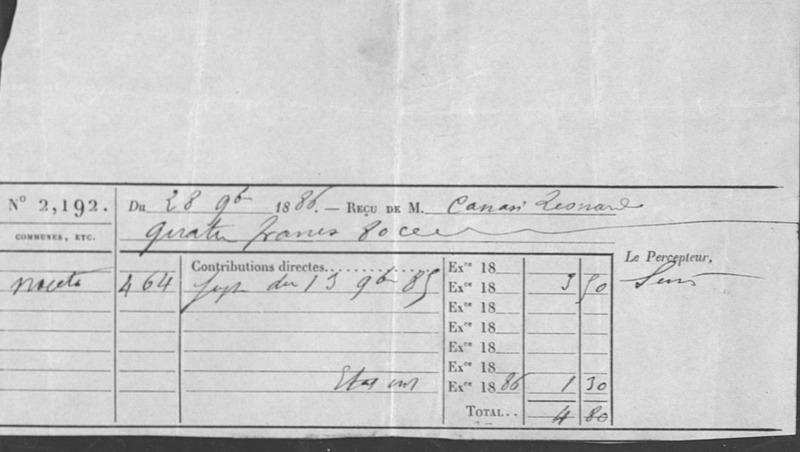 N° 2,192. Du 28 9bre 1886. — Reçu de M. Canari Leonard
COMMUNES, ETC. quatre francs 80 ce
Le Percepteur,
Contributions directes Exce 18
Noceta 464 du 13 9bre 85 Exce 18 3 50
Exce 18
Exce 18
Exce 18
Exce 18
Exce 1886 1 30
Total.. 4 80